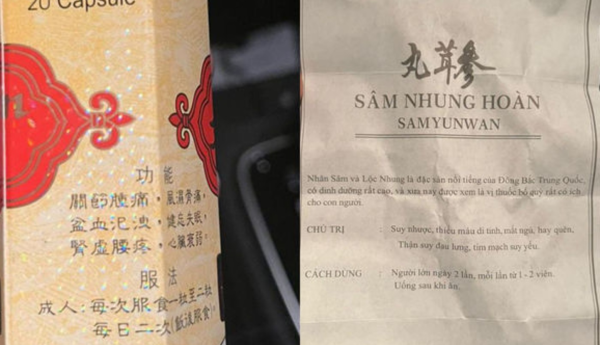 20 Capsule
功能
關節腫痛，風濕骨痛，
盆血汜洩，健忘失眠，
腎虛腰疼，心臟衰弱。
服法
成人：每次服食一粒至二粒
每日二次(飯後服食)。
丸茸參
SÂM NHUNG HOÀN
SAMYUNWAN
Nhân Sâm và Lộc Nhung là đặc sản nổi tiếng của Đông Bắc Trung Quốc,
có dinh dưỡng rất cao, và xưa nay được xem là vị thuốc bổ quý rất có ích
cho con người.
CHỦ TRỊ : Suy nhược, thiếu máu di tinh, mất ngủ, hay quên,
Thận suy đau lưng, tim mạch suy yếu.
CÁCH DÙNG : Người lớn ngày 2 lần, mỗi lần từ 1 - 2 viên.
Uống sau khi ăn.